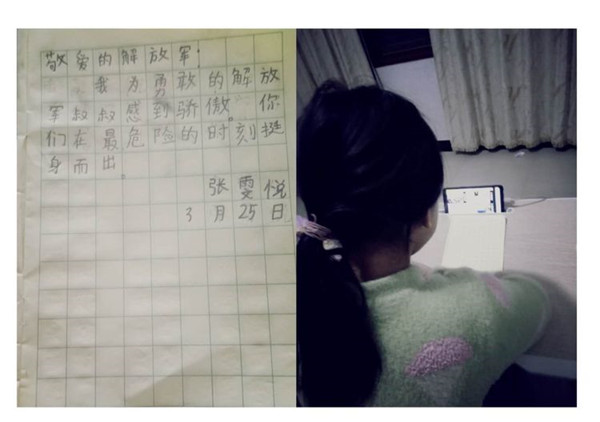 敬爱的解放军：
我为勇敢的解放
军叔叔感到骄傲。你
们在最危险的时刻挺
身而出。
张雯悦
3月25日